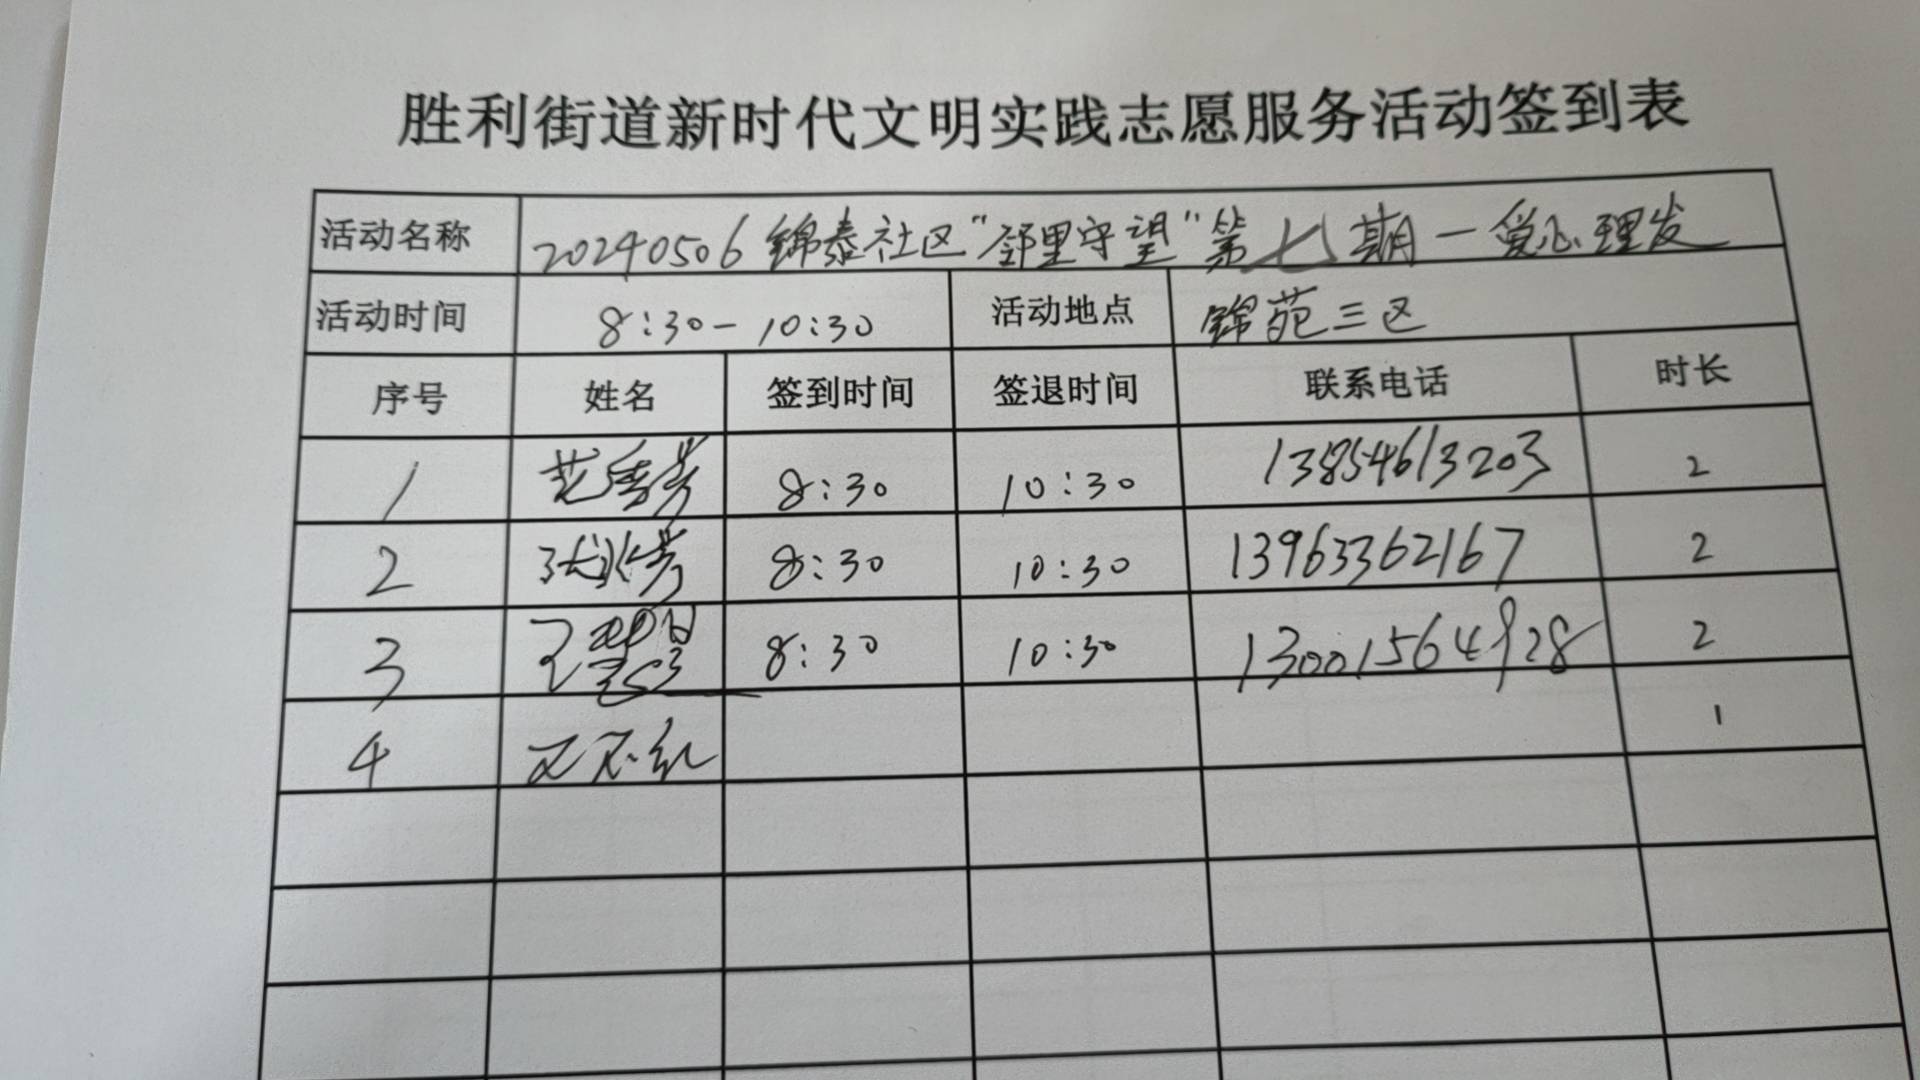 胜利街道新时代文明实践志愿服务活动签到表
活动名称 20240506锦泰社区“邻里守望”第七期一爱心理发
活动时间 8:30-10:30 活动地点 锦苑三区
序号 姓名 签到时间 签退时间 联系电话 时长
1 范秀芳 8:30 10:30 13854613203 2
2 张冰芳 8:30 10:30 13963362167 2
3 8:30 10:30 13001564928 2
4 1